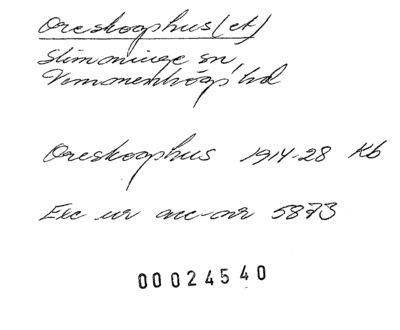 Oreskogshus(et)
Slimminge sn,
Vemmenhögs hd
Oreskogshus 1914-28 Kb
Exc ur acc-nr 5873
00024540